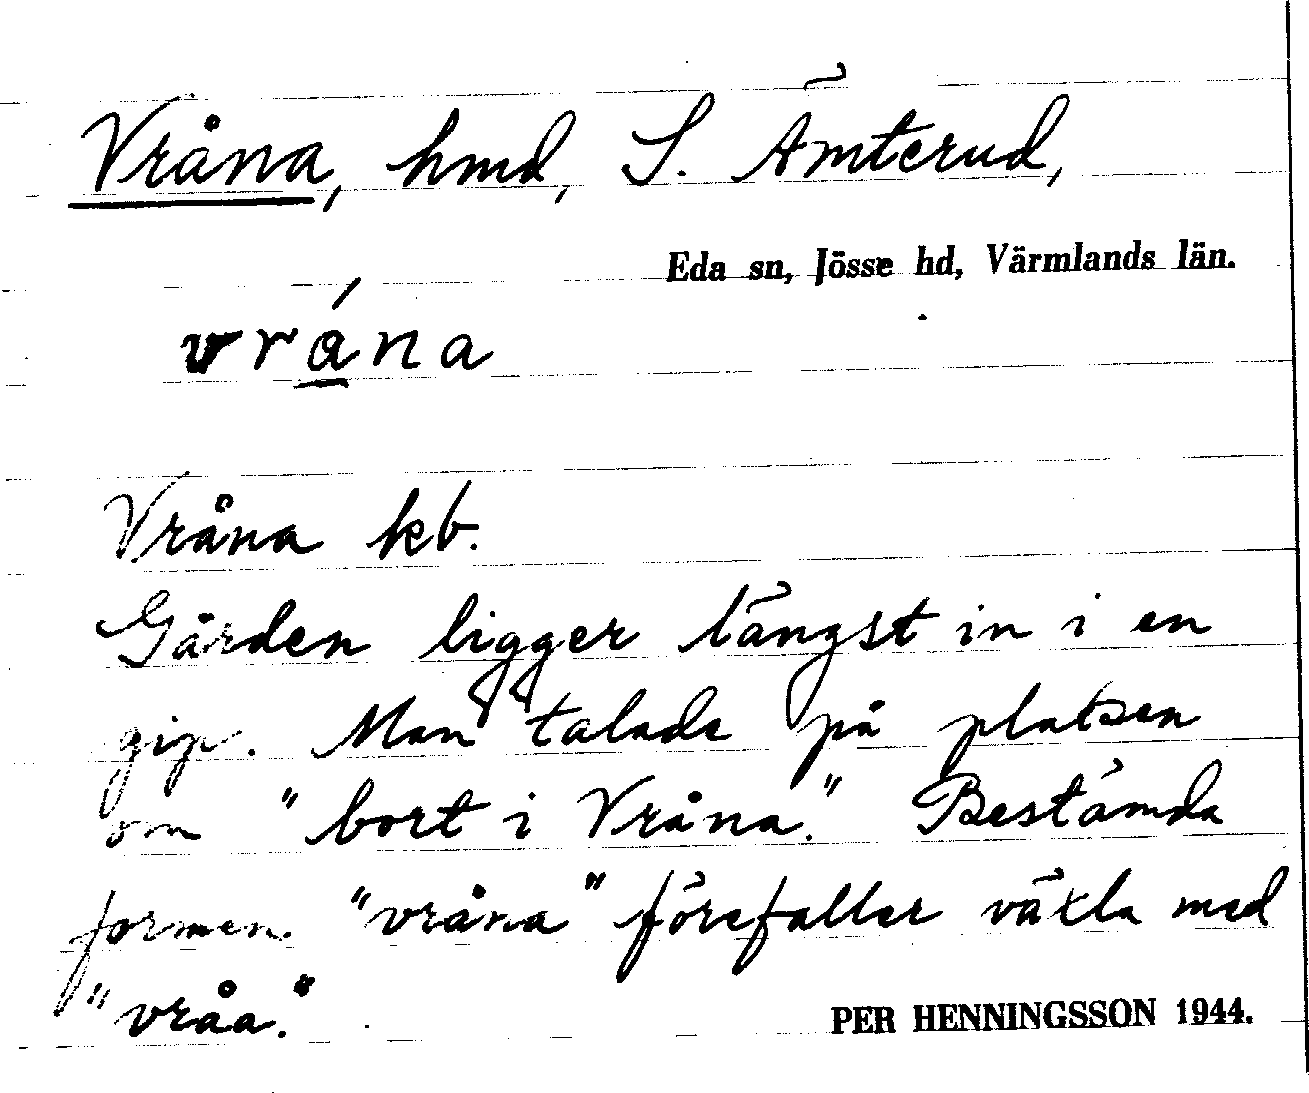 Vråna, hmd, S. Ämterud,
Eda sn, Jösse hd, Värmlands län.
vråna
Vråna kb.
Gården ligger längst in i en
gip. Man talade på platsen
om "bort i Vråna." Bestämda
formen "vråna" förefaller växla med
"vråa."
PER HENNINGSSON 1944.